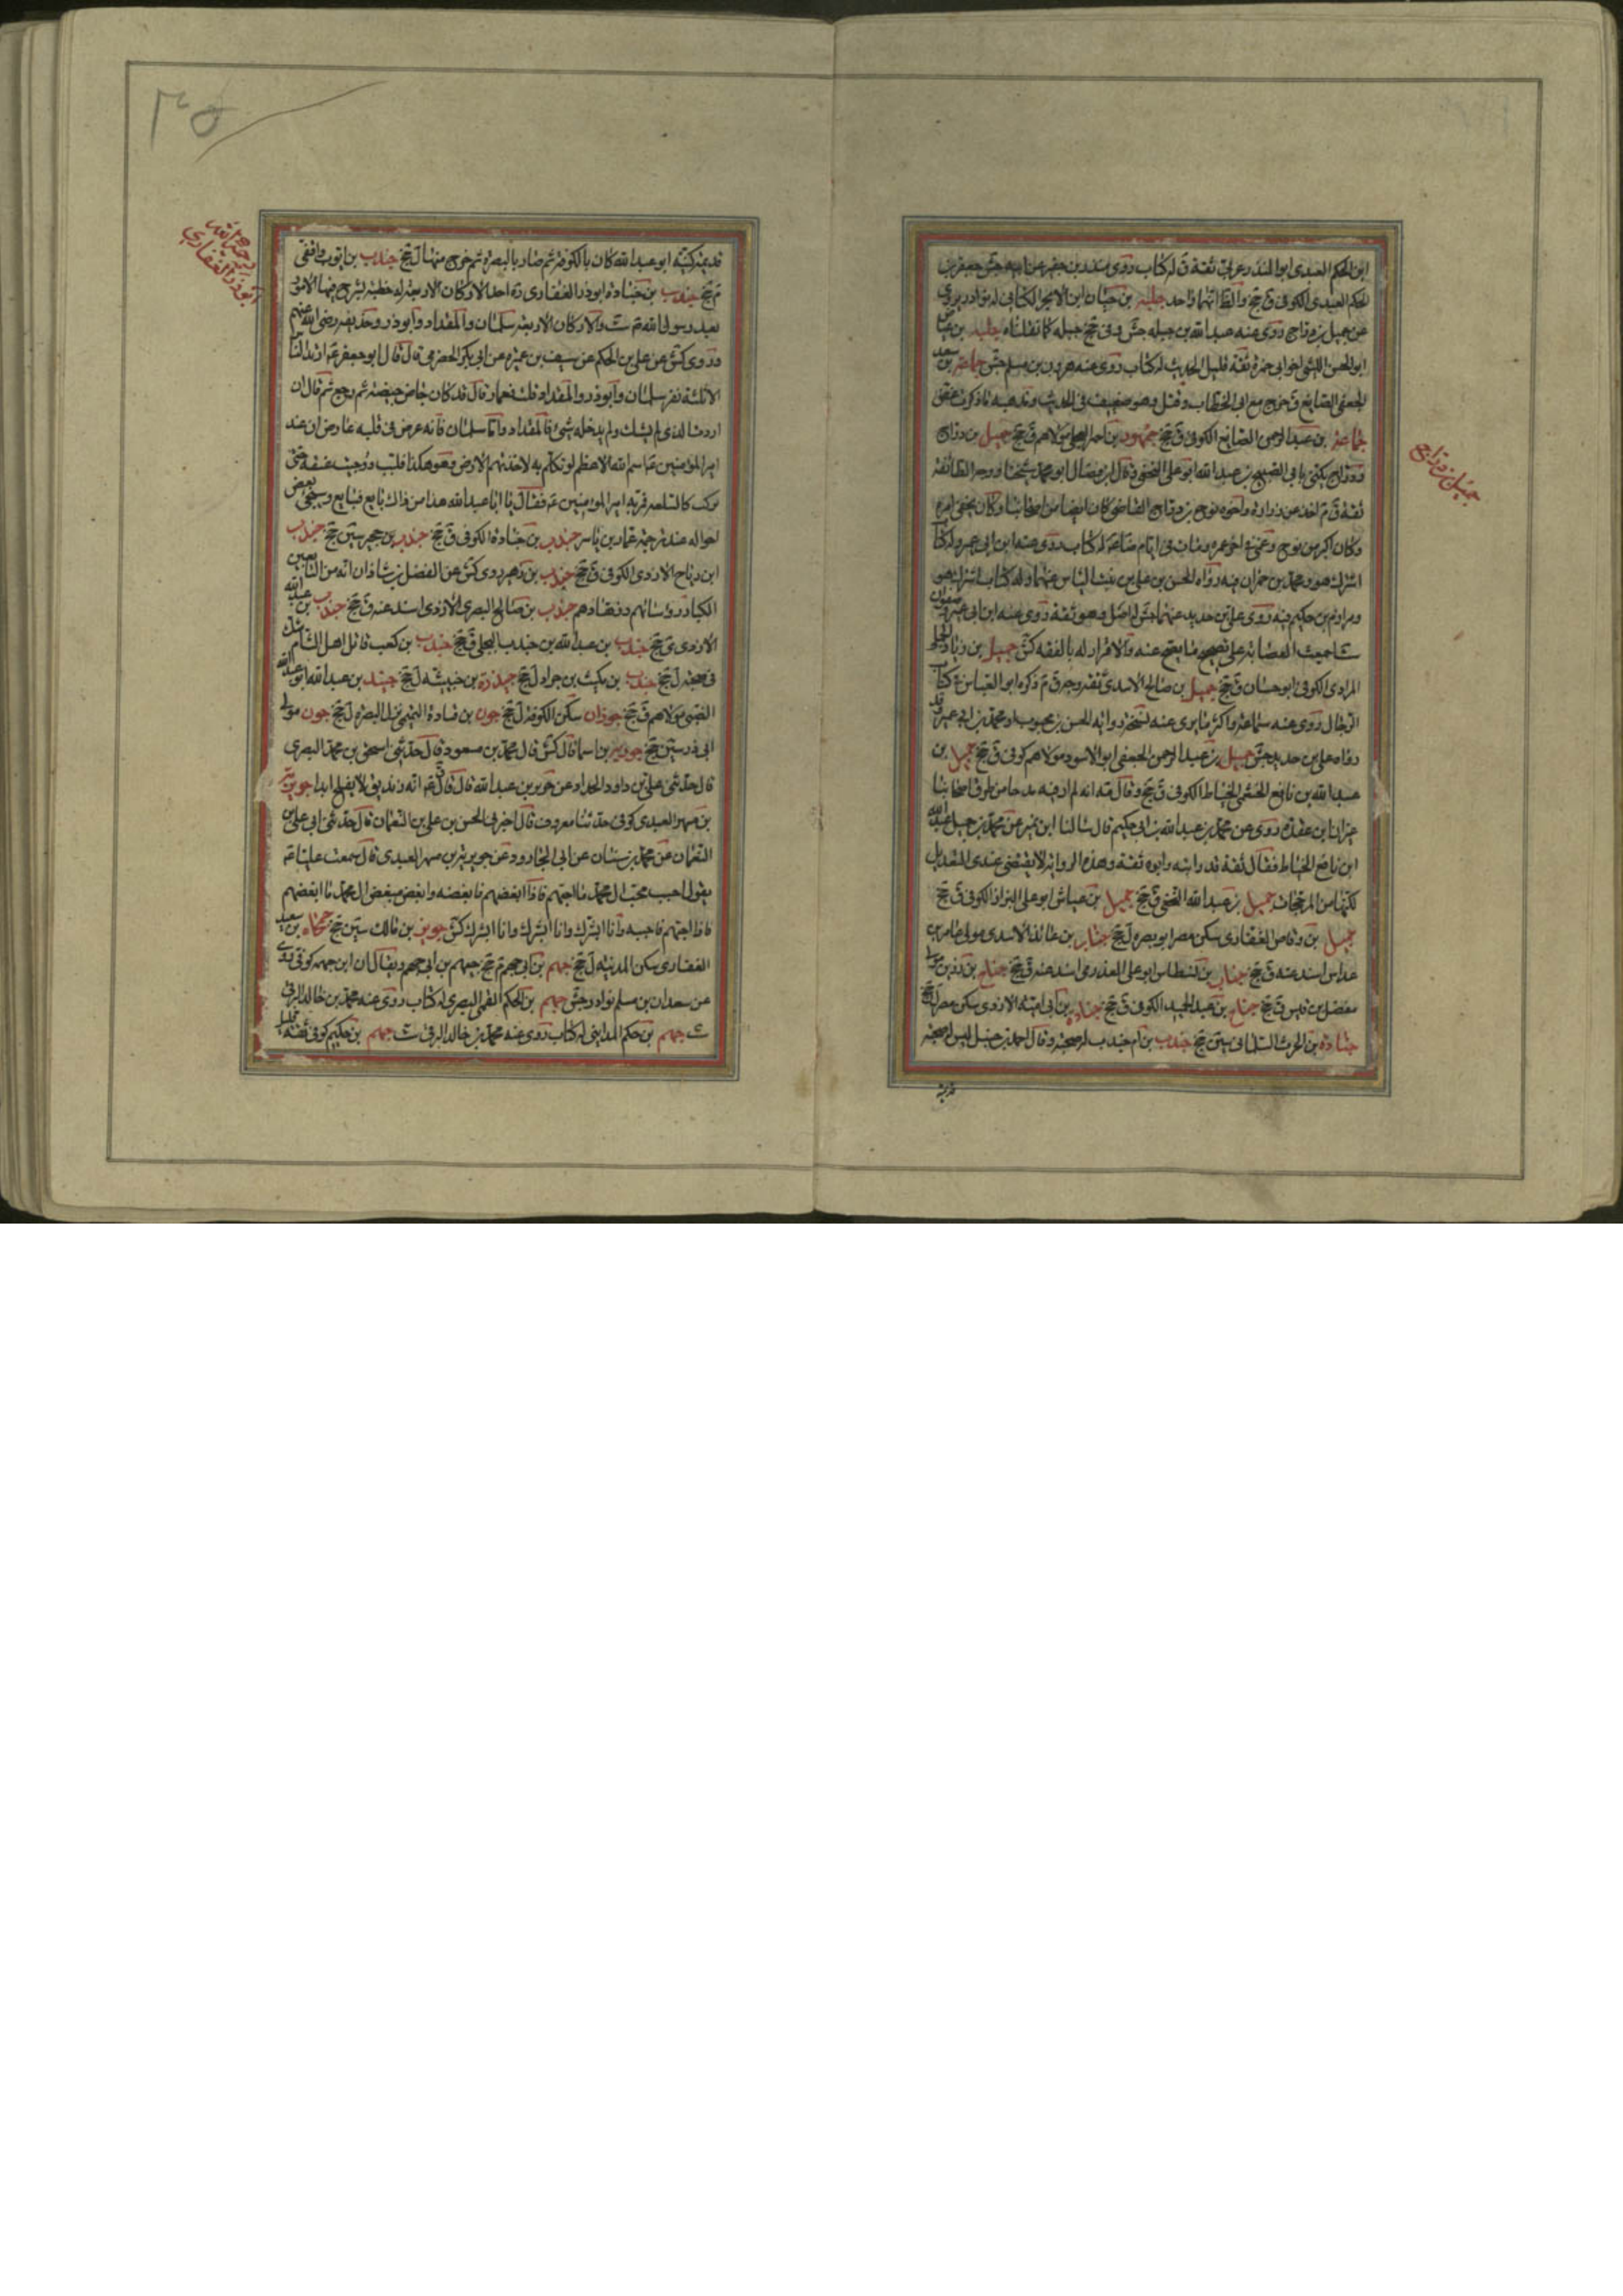 ابن الحكم العبدى ابو المنذر عربى ثقة ق له كتاب روى منذر بن جفير عن ابيه جش جعفر بن
الحكم العبدى الكوفى ق جخ والظ اتهما واحد جلبة بن حيان ابن الابجر الكنانى له نوادر يروى
عن جميل بن دراج روى عنه عبد الله بن جبله جش وفى جخ جبله كما نقلناه جليد بن
ابو الحسن الليثى اخو ابى حمزة ثقة قليل الحديث له كتاب روى عنه هرون بن مسلم جش جماعة بن سعد
الجعفى الصايغ ق خرج مع ابى الخطاب وقتل وهو ضعيف فى الحديث ومذهبه ما ذكرت غض
جماعة بن عبد الرحمن الصايغ الكوفى ق جخ جمهور بن احمر العجلى مولاهم ق جخ جميل بن دراج
ودراج يكنى بابى الصبيح بن عبد الله ابو على النخعى وقال ابن فضال ابو محمد شيخنا ووجه الطائفة
ثقة ق م اخذ عن زرارة واخوه نوح بن دراج القاضى كان ايضا من اصحابنا وكان يخفى امره
وكان اكبر من نوح وعمى فى اخر عمره ومات فى ايام ضا عم له كتاب روى عنه ابن ابى عمير وله كتاب
اشترك هو ومحمد بن حمران فيه رواه الحسن بن على بن بنت الياس عنهما وله كتاب اشترك هو
ومرازم بن حكيم فيه روى على بن حديد عنهما جش له اصل وهو ثقة روى عنه ابن ابى عمير وصفوان
ست اجمعت العصابة على تصحيح ما يصح عنه والاقرار له بالفقه كش جميل بن زياد الجملى
المرادى الكوفى ابو حسان ق جخ جميل بن صالح الاسدى ثقة وجه ق م ذكره ابو العباس فى كتاب
الرجال روى عنه سماعة واكثر ما يروى عنه نسخة رواية الحسن بن محبوب او محمد بن ابى عمير وقد
رواه على بن حديد جش جميل بن عبد الرحمن الجعفى ابو الاسود مولاهم كوفى ق جخ جميل بن
عبد الله بن نافع الخثعمى الخياط الكوفى ق جخ وقال صه انه لم ار فيه مدحا من طرق اصحابنا
غير ان ابن عقدة روى عن محمد بن عبد الله بن ابى حكيم قال سالنا ابن نمير عن محمد بن جميل بن عبد الله
ابن نافع الخياط فقال ثقة قد رايته وابوه ثقة وهذه الرواية لا يقتضى عندى التعديل
لكنها من المرجحات جميل بن عبد الله النخعى ق جخ جميل بن عياش ابو على البزاز الكوفى ق جخ
جميل بن وقاص الغفارى سكن مصر ابو بصره ل جخ جناب بن عائذ الاسدى مولى عامر بن
عداس اسند عنه ق جخ جناب بن نسطاس ابو على العذرمى اسند عنه ق جخ جناح بن رزين مولى
مفضل بن قيس ق جخ جناح بن عبد الحميد الكوفى ق جخ جناده بن ابى امية الازدى سكن مصر ل جخ
جنادة بن الحرث السلمانى سين جخ جندب بن ام جندب له صحبة وقال احمد بن حنبل ليس له صحبة
قديمة
جميل بن دراج
قديمة كنيته ابو عبد الله كان بالكوفة ثم صار بالبصرة ثم خرج منها ل جخ جندب بن ايوب واقفى
م جخ جندب بن جنادة ابو ذر الغفارى ره احد الاركان الاربعة له خطبة يشرح فيها الامور
بعد رسول الله ص ست والاركان الاربعة سلمان والمقداد وابو ذر وحذيفة رضى الله عنهم
وروى كش عن على بن الحكم عن سيف بن عميرة عن ابى بكر الحضرمى قال قال ابو جعفر عم ارتد الناس
الا ثلثة نفر سلمان وابو ذر والمقداد قلت فعمار قال قد كان جاض جيضة ثم رجع ثم قال ان
اردت الذى لم يشك ولم يدخله شئ فالمقداد واما سلمان فانه عرض فى قلبه عارض ان عند
امير المؤمنين عم اسم الله الاعظم لو تكلم به لاخذتهم الارض وهو هكذا فلبب ووجئت عنقه حتى
تركت كالسلعة فمر به امير المؤمنين عم فقال يا ابا عبد الله هذا من ذاك بايع فبايع وسيجئ بعض
احواله عند ترجمة عمار بن ياسر جندب بن جنادة الكوفى ق جخ جندب بن حجير سين جخ جندب
ابن رباح الازدى الكوفى ق جخ جندب بن زهير روى كش عن الفضل بن شاذان انه من التابعين
الكبار ورؤسائهم وزهادهم جندب بن صالح البصرى الازدى اسند عنه ق جخ جندب بن عبد الله
الازدى ى جخ جندب بن عبد الله بن جندب البجلى ق جخ جندب بن كعب قاتل اهل الشام شك
فى صحبته ل جخ جندب بن مكيث بن جراد ل جخ جيذرة بن خيشنه ل جخ جنيد بن عبد الله ابو عبد الله
الضبى مولاهم ق جخ جوذان سكن الكوفة ل جخ جون بن قتادة التيمى نزل البصرة ل جخ جون مولى
ابى ذر سين جخ جويرية بن اسما قال كش قال محمد بن مسعود قال حدثنى اسحق بن محمد البصرى
قال حدثنى على بن داود الحداد عن حريز بن عبد الله قال قال ق عم انه زنديق لا يفلح ابدا جويرية
بن مسهر العبدى كوفى حدثنا معروف قال اخبرنى الحسن بن على بن النعمان قال حدثنى ابى على بن
النعمان عن محمد بن سنان عن ابى الجارود عن جويرية بن مسهر العبدى قال سمعت عليا عم
يقول احب محب ال محمد ما احبهم فاذا ابغضهم فابغضه وابغض مبغض ال محمد ما ابغضهم
فاذا احبهم فاحبه وانا ابشرك وانا ابشرك وانا ابشرك كش جوين بن مالك سين جخ جهجاه بن سعيد
الغفارى سكن المدينة ل جخ جهم بن ابى جهم م جخ جهيم بن ابى جهم ويقال ان ابن جهمه كوفى روى
عن سعدان بن مسلم نوادر جش جهم بن الحكم القمى البصرى له كتاب روى عنه محمد بن خالد البرقى
ست جهم بن حكم المداينى له كتاب روى عنه محمد بن خالد البرقى ست جهم بن حكيم كوفى ثقة قليل
ابوذر الغفارى